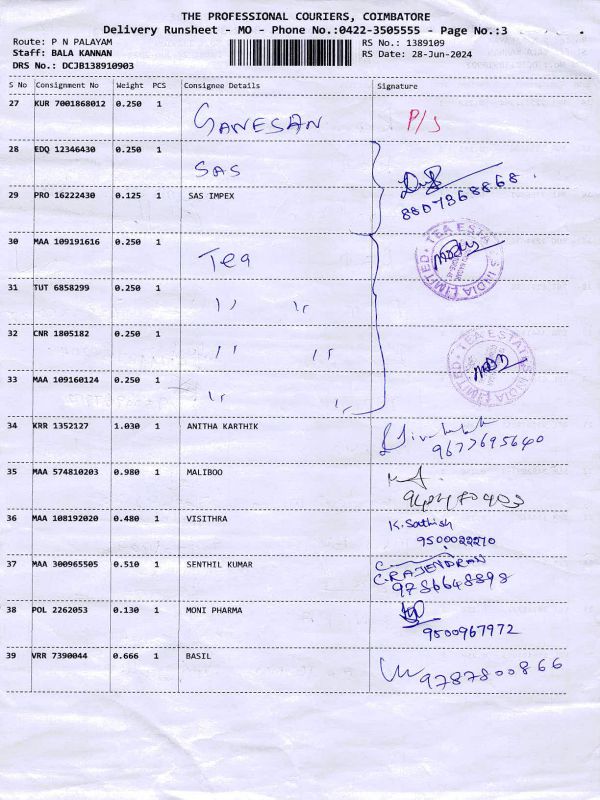 THE PROFESSIONAL COURIERS, COIMBATORE
Delivery Runsheet - MO - Phone No.:0422-3505555 - Page No.:3
Route: P N PALAYAM
RS No.: 1389109
Staff: BALA KANNAN
RS Date: 28-Jun-2024
DRS No.: DCJB138910903
S No Consignment No Weight PCS Consignee Details Signature
27 KUR 7001868012 0.250 1 GANESAN P/S
28 EDQ 12346430 0.250 1 SAS
29 PRO 16222430 0.125 1 SAS IMPEX
8807868868.
30 MAA 109191616 0.250 1 Tea
TEA ESTATES INDIA LIMITED
31 TUT 6858299 0.250 1 " "
32 CNR 1805182 0.250 1 " "
TEA ESTATES INDIA LIMITED
33 MAA 109160124 0.250 1 " "
34 KRR 1352127 1.030 1 ANITHA KARTHIK
9677695640
35 MAA 574810203 0.980 1 MALIBOO
36 MAA 108192020 0.480 1 VISITHRA K. Sathish
9500022270
37 MAA 300965505 0.510 1 SENTHIL KUMAR C. RAJENDRAN
9786648898
38 POL 2262053 0.130 1 MONI PHARMA
9500967972
39 VRR 7390044 0.666 1 BASIL
9787800866